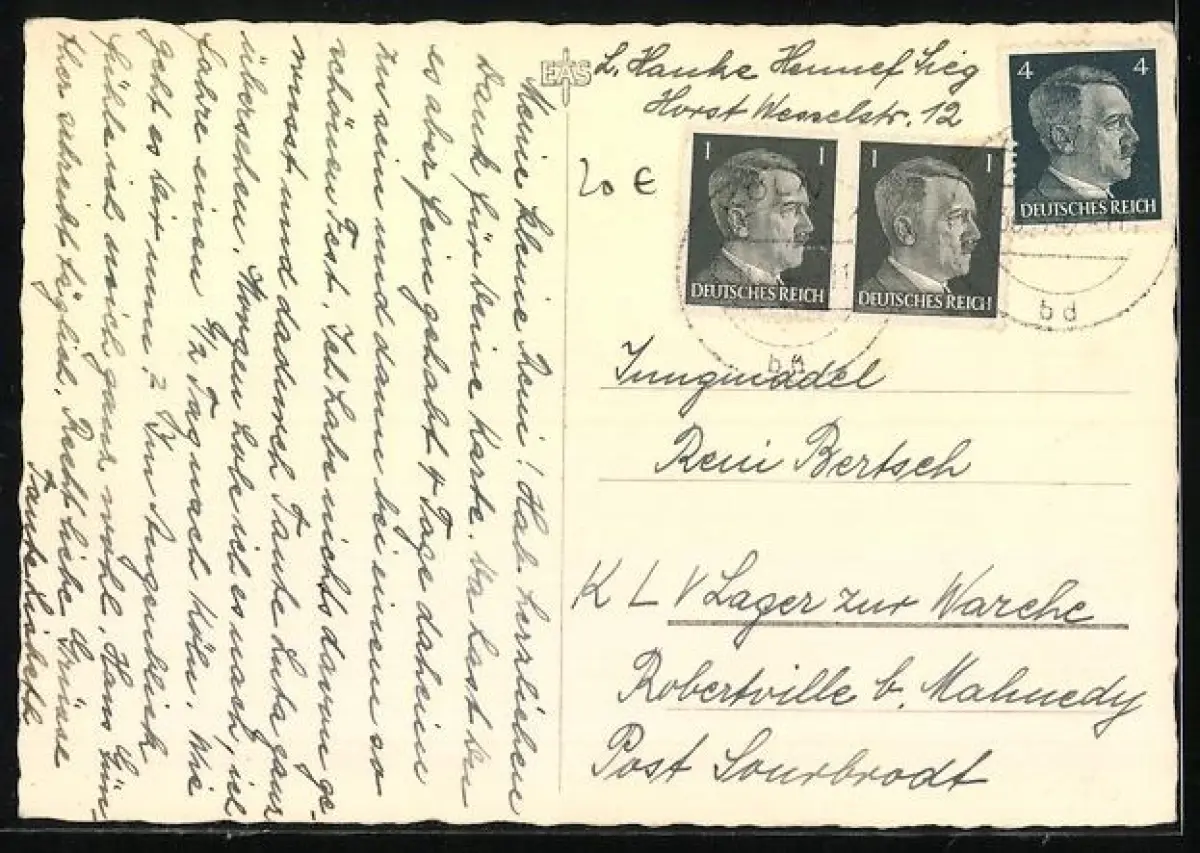 L. Hauke Hennef Sieg
Horst Wesselstr. 12
EAS
4 4
DEUTSCHES REICH
1 1
DEUTSCHES REICH
1 1
DEUTSCHES REICH
bd
20 €
Jungmädel
Reni Bertsch
KLV Lager zur Warche
Robertville b. Malmedy
Post Sourbrodt
Meine kleine Reni! Hab herzlichen
Dank für Deine Karte. Da hast Du
es aber fein gehabt 4 Tage daheim
zu sein und dann bei einem so
schönen Fest. Ich habe nichts davon ge-
wusst und dadurch Tante Luta ganz
übersehen. Morgen hole ich es nach, ich
fahre einen 1/2 Tag nach Köln. Wie
geht es Dir nun? Im Augenblick
fühle ich mich ganz wohl. Hans Gün-
ther schreibt täglich. Recht liebe Grüsse
Tante Lisbeth